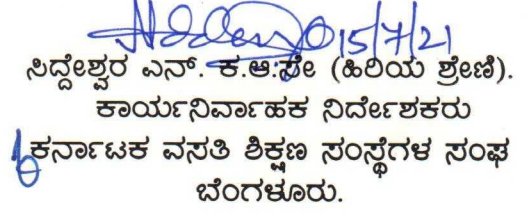 15/7/21
ಸಿದ್ದೇಶ್ವರ ಎನ್. ಕ.ಆ.ಸೇ (ಹಿರಿಯ ಶ್ರೇಣಿ).
ಕಾರ್ಯನಿರ್ವಾಹಕ ನಿರ್ದೇಶಕರು
ಕರ್ನಾಟಕ ವಸತಿ ಶಿಕ್ಷಣ ಸಂಸ್ಥೆಗಳ ಸಂಘ
ಬೆಂಗಳೂರು.